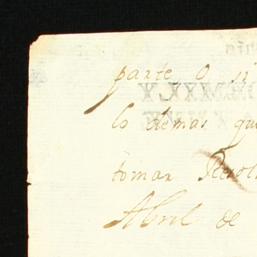 parte o si
lo demas que
tomar Resol
Abril de